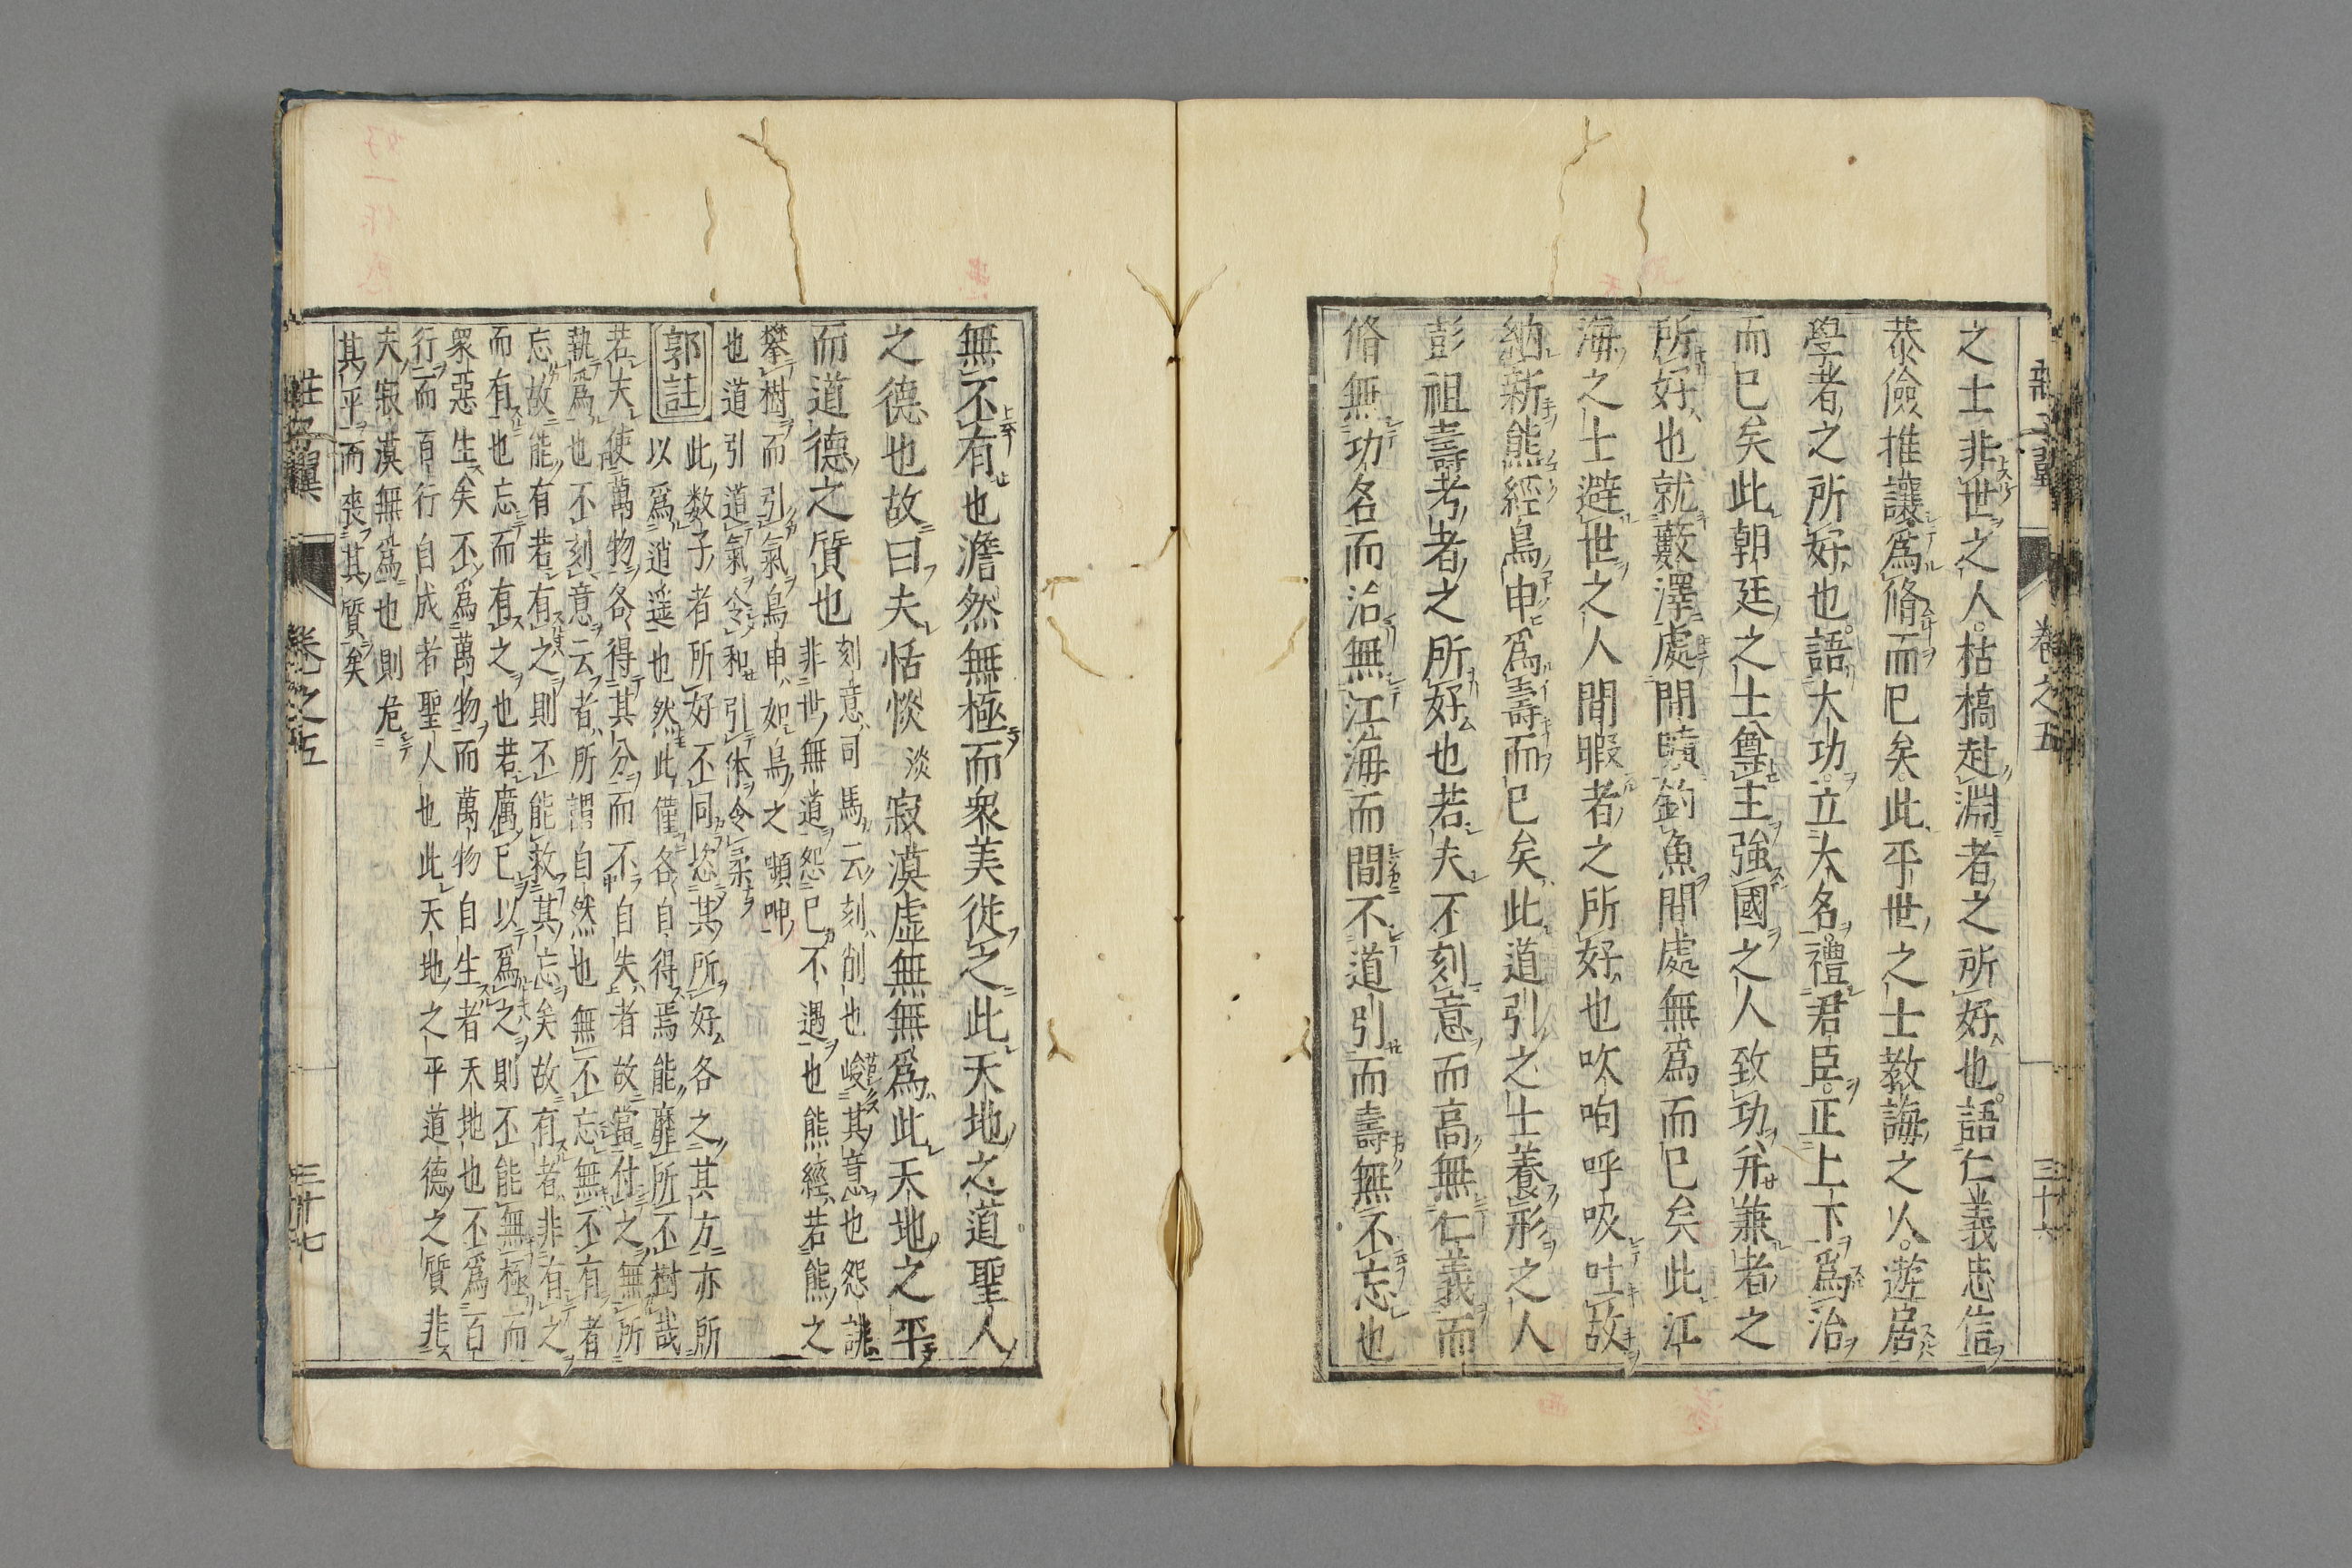 之士非世之人枯槁赴淵者之所好也語仁義忠信
恭儉推讓爲脩而已矣此平世之士教誨之人遊居
學者之所好也語大功立大名禮君臣正上下爲治
而已矣此朝廷之士尊主強國之人致功并兼者之
所好也就藪澤處閒曠釣魚閒處無爲而已矣此江
海之士避世之人間暇者之所好也吹呴呼吸吐故
納新熊經鳥申爲壽而已矣此道引之士養形之人
彭祖壽考者之所好也若夫不刻意而高無仁義而
脩無功名而治無江海而間不道引而壽無不忘也
卷之五
三十六
無不有也澹然無極而衆美從之此天地之道聖人
之德也故曰夫恬惔 淡 寂漠虛無無爲此天地之平
而道德之質也
刻意司馬云刻削也峻其意也怨誹
非世無道怨己不遇也熊經若熊之
攀樹而引氣鳥申如鳥之嚬呻
也道引道氣令和引体令柔
郭註
此数子者所好不同恣其所好各之其方亦所
以爲逍遥也然此僅各自得焉能靡所不樹哉
若夫使萬物各得其分而不自失者故當付之無所
執爲也不刻意云者所謂自然也無不忘無不有者
忘故能有若有之則不能救其忘矣故有者非有之
而有也忘而有之也若厲已以爲之則不能無極而
衆惡生矣不爲萬物而萬物自生者天地也不爲百
行而百行自成者聖人也此天地之平道德之質非
夫寂漠無爲也則危
其平而喪其質矣
莊子翼
卷之五
三十七